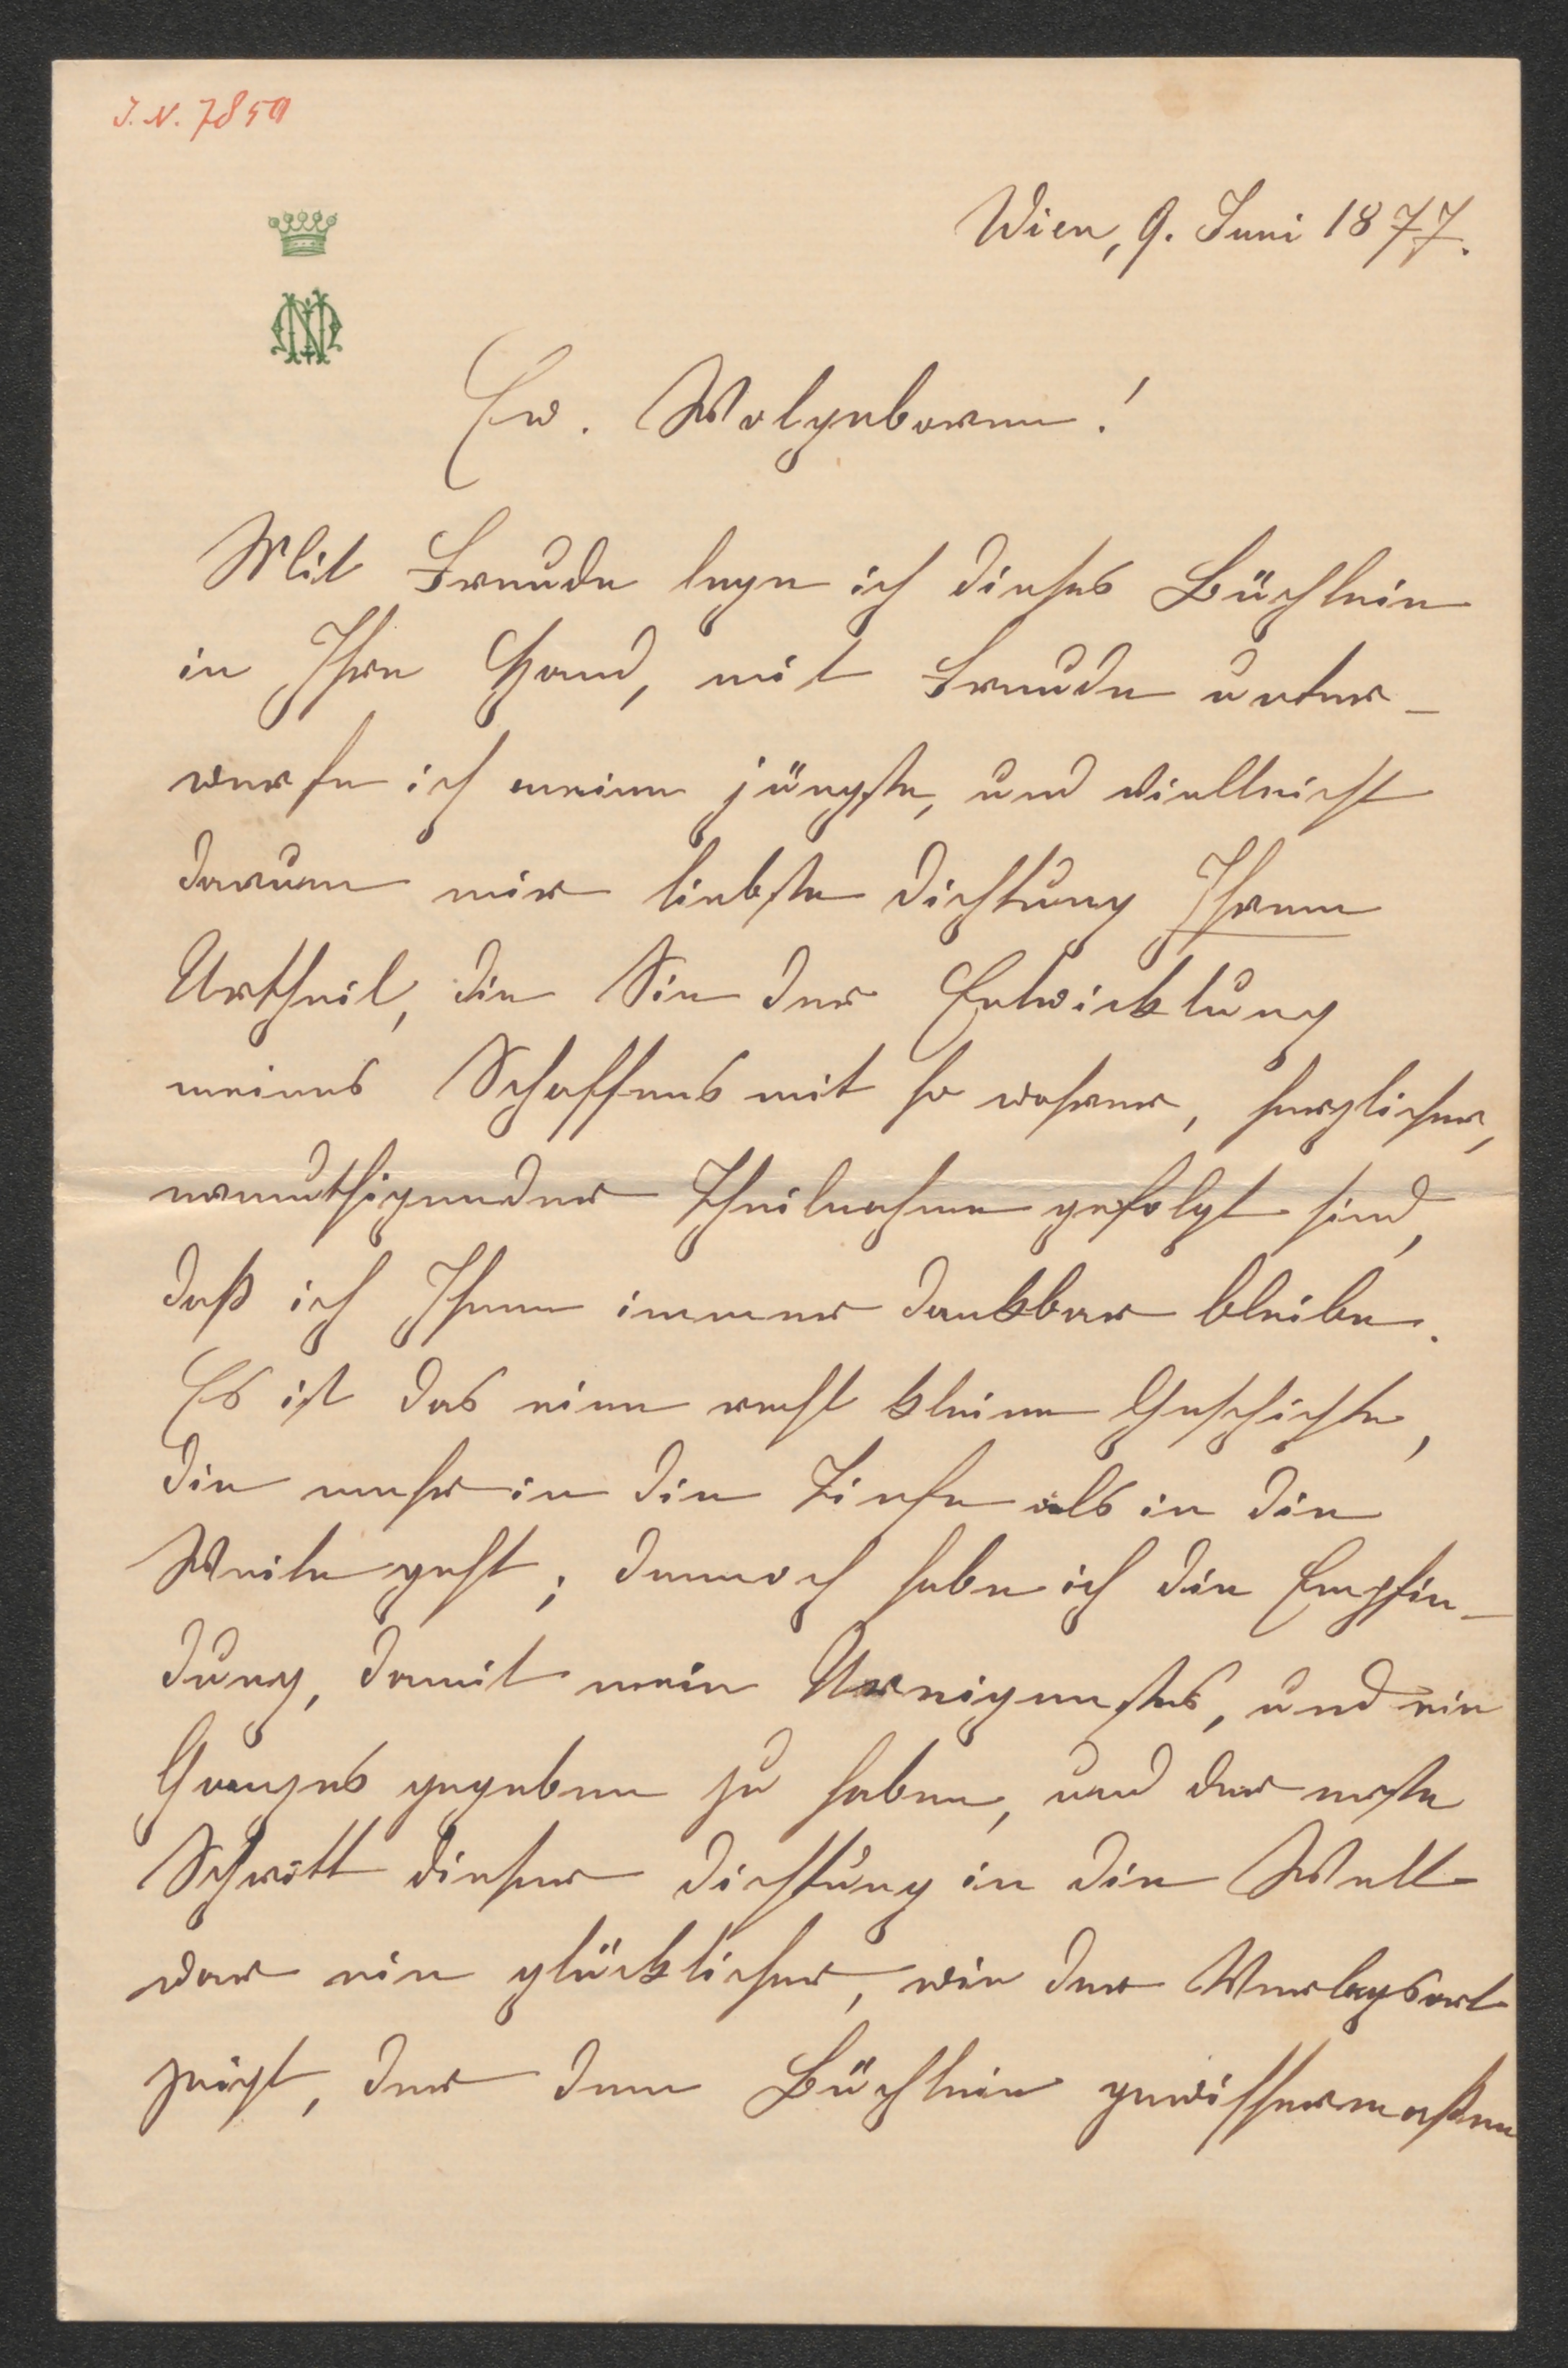 J. N. 7859
Wien, 9. Juni 1877.
Ew. Wolgeboren!
Mit Freude lege ich dieses Büchlein
in Ihre Hand, mit Freude unter-
werfe ich meine jüngste, und vielleicht
darum mir liebste Dichtung Ihrem
Urtheil, die Sie der Entwicklung
meines Schaffens mit so wahrer, herzlicher,
ermuthigender Theilnahme gefolgt sind,
daß ich Ihnen immer dankbar bleibe.
Es ist das eine recht kleine Geschichte,
die mehr in die Tiefe als in die
Weite geht; dennoch habe ich die Empfin-
dung, damit mein Ureigenstes, und ein
Ganzes gegeben zu haben, und der erste
Schritt dieser Dichtung in die Welt
war ein glücklicher, wie der Verlagsort
zeigt, der dem Büchlein gewissermaßen